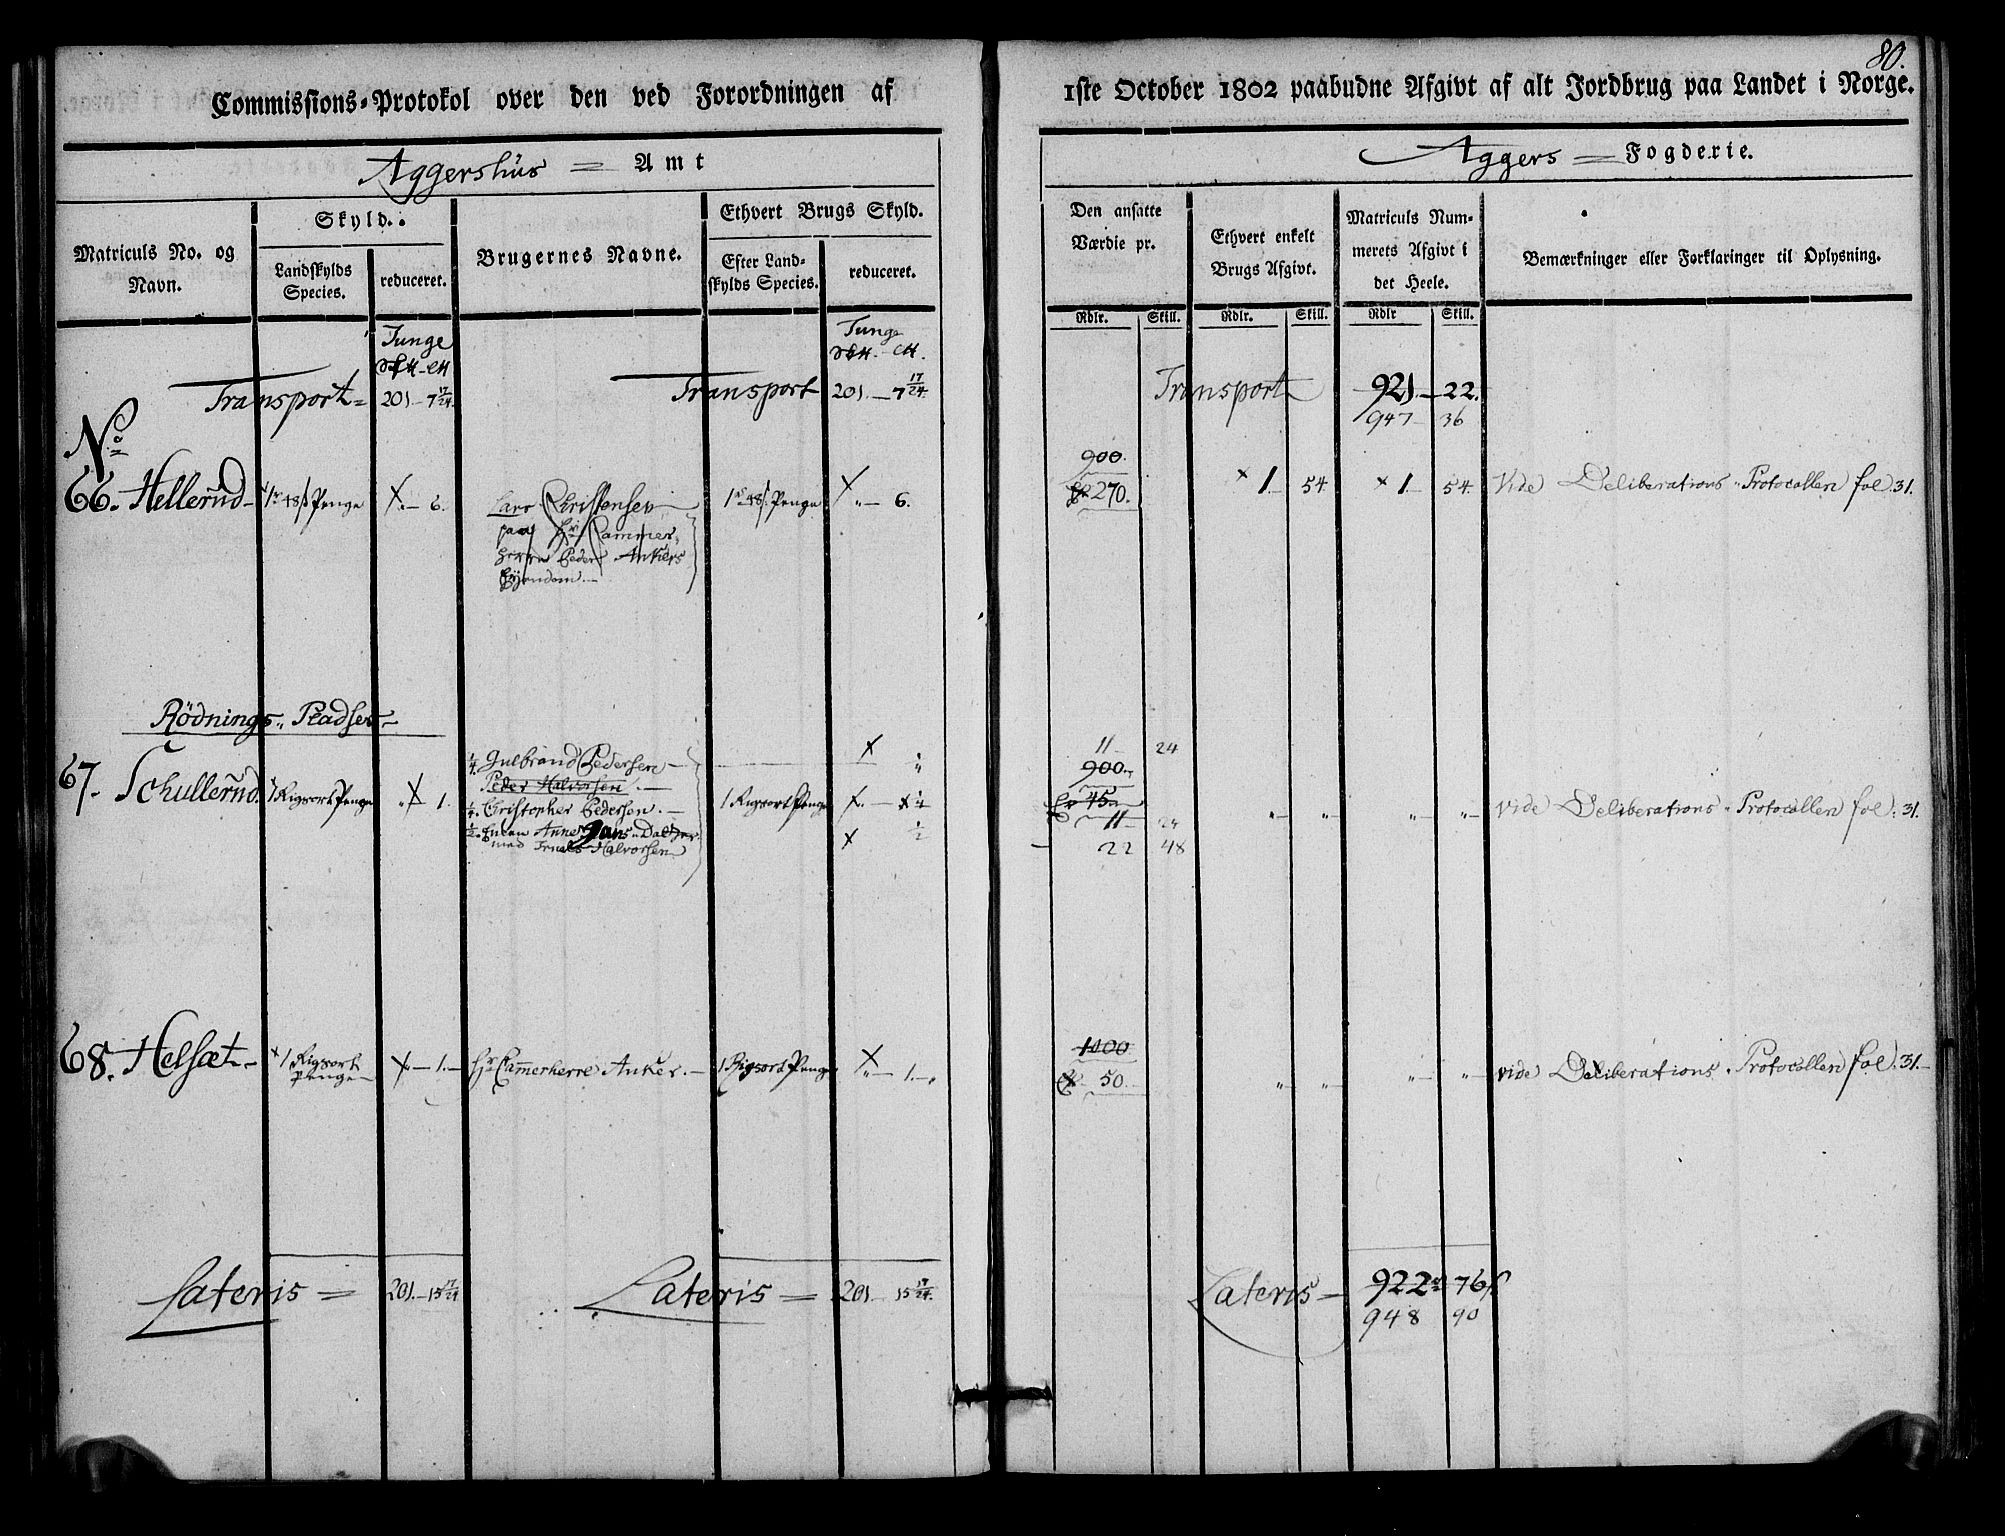 80.
Commissions-Protokol over den ved Forordningen af 1ste October 1802 paabudne Afgivt af alt Jordbrug paa Landet i Norge.
Aggershuus = Amt
Aggers = Fogderie.
Matriculs No. og Navn.
Skyld.
Landskylds Species.
reduceret.
Brugernes Navne.
Ethvert Brugs Skyld.
Efter Landskylds Species.
reduceret.
Den ansatte Værdie pr.
Ethvert enkelt Brugs Afgivt.
Matriculs Nummerets Afgivt i det Heele.
Bemærkninger eller Forklaringer til Oplysning.
Rdlr. Skill. Rdlr. Skill. Rdlr Skill.
Tunge Tunge
Transport 201 - 7 17/24 Transport 201. - 7 17/24 Transport 921. - 22.
947 - 36
No
900.
66. Hellerud - 48 s Penge - 6. Lars Christensen 48 s. Penge - 6. 270. 1. - 54 1. - 54. Vide Deliberations Protocollen fol. 31.
paa Hr. Cammer-
herre Peder Ankers
Eyendom. -
Rödnings Pladser -
67. Schullerud. 1 Rigsort Penge 1. 1 Rigsort Penge vide Deliberations Protocollen fol. 31.
1/4. Gulbrand Pedersen - 11 - 24
Peder Halvorsen. - 900.
1/4. Christopher Pedersen. - 1/4 45
1/2. Anne 1/2 11 - 24
med Halvorsen 22 48
68. Helsæt - 1 Rigsort Penge - 1. - Hr. Camerherre Anker. - 1 Rigsort Penge - 1. 1000
50. vide Deliberations Protocollen fol. 31. -
Lateris = 201. - 15 17/24 Lateris = 201 15 17/24. Lateris - 922 76 s
948 90